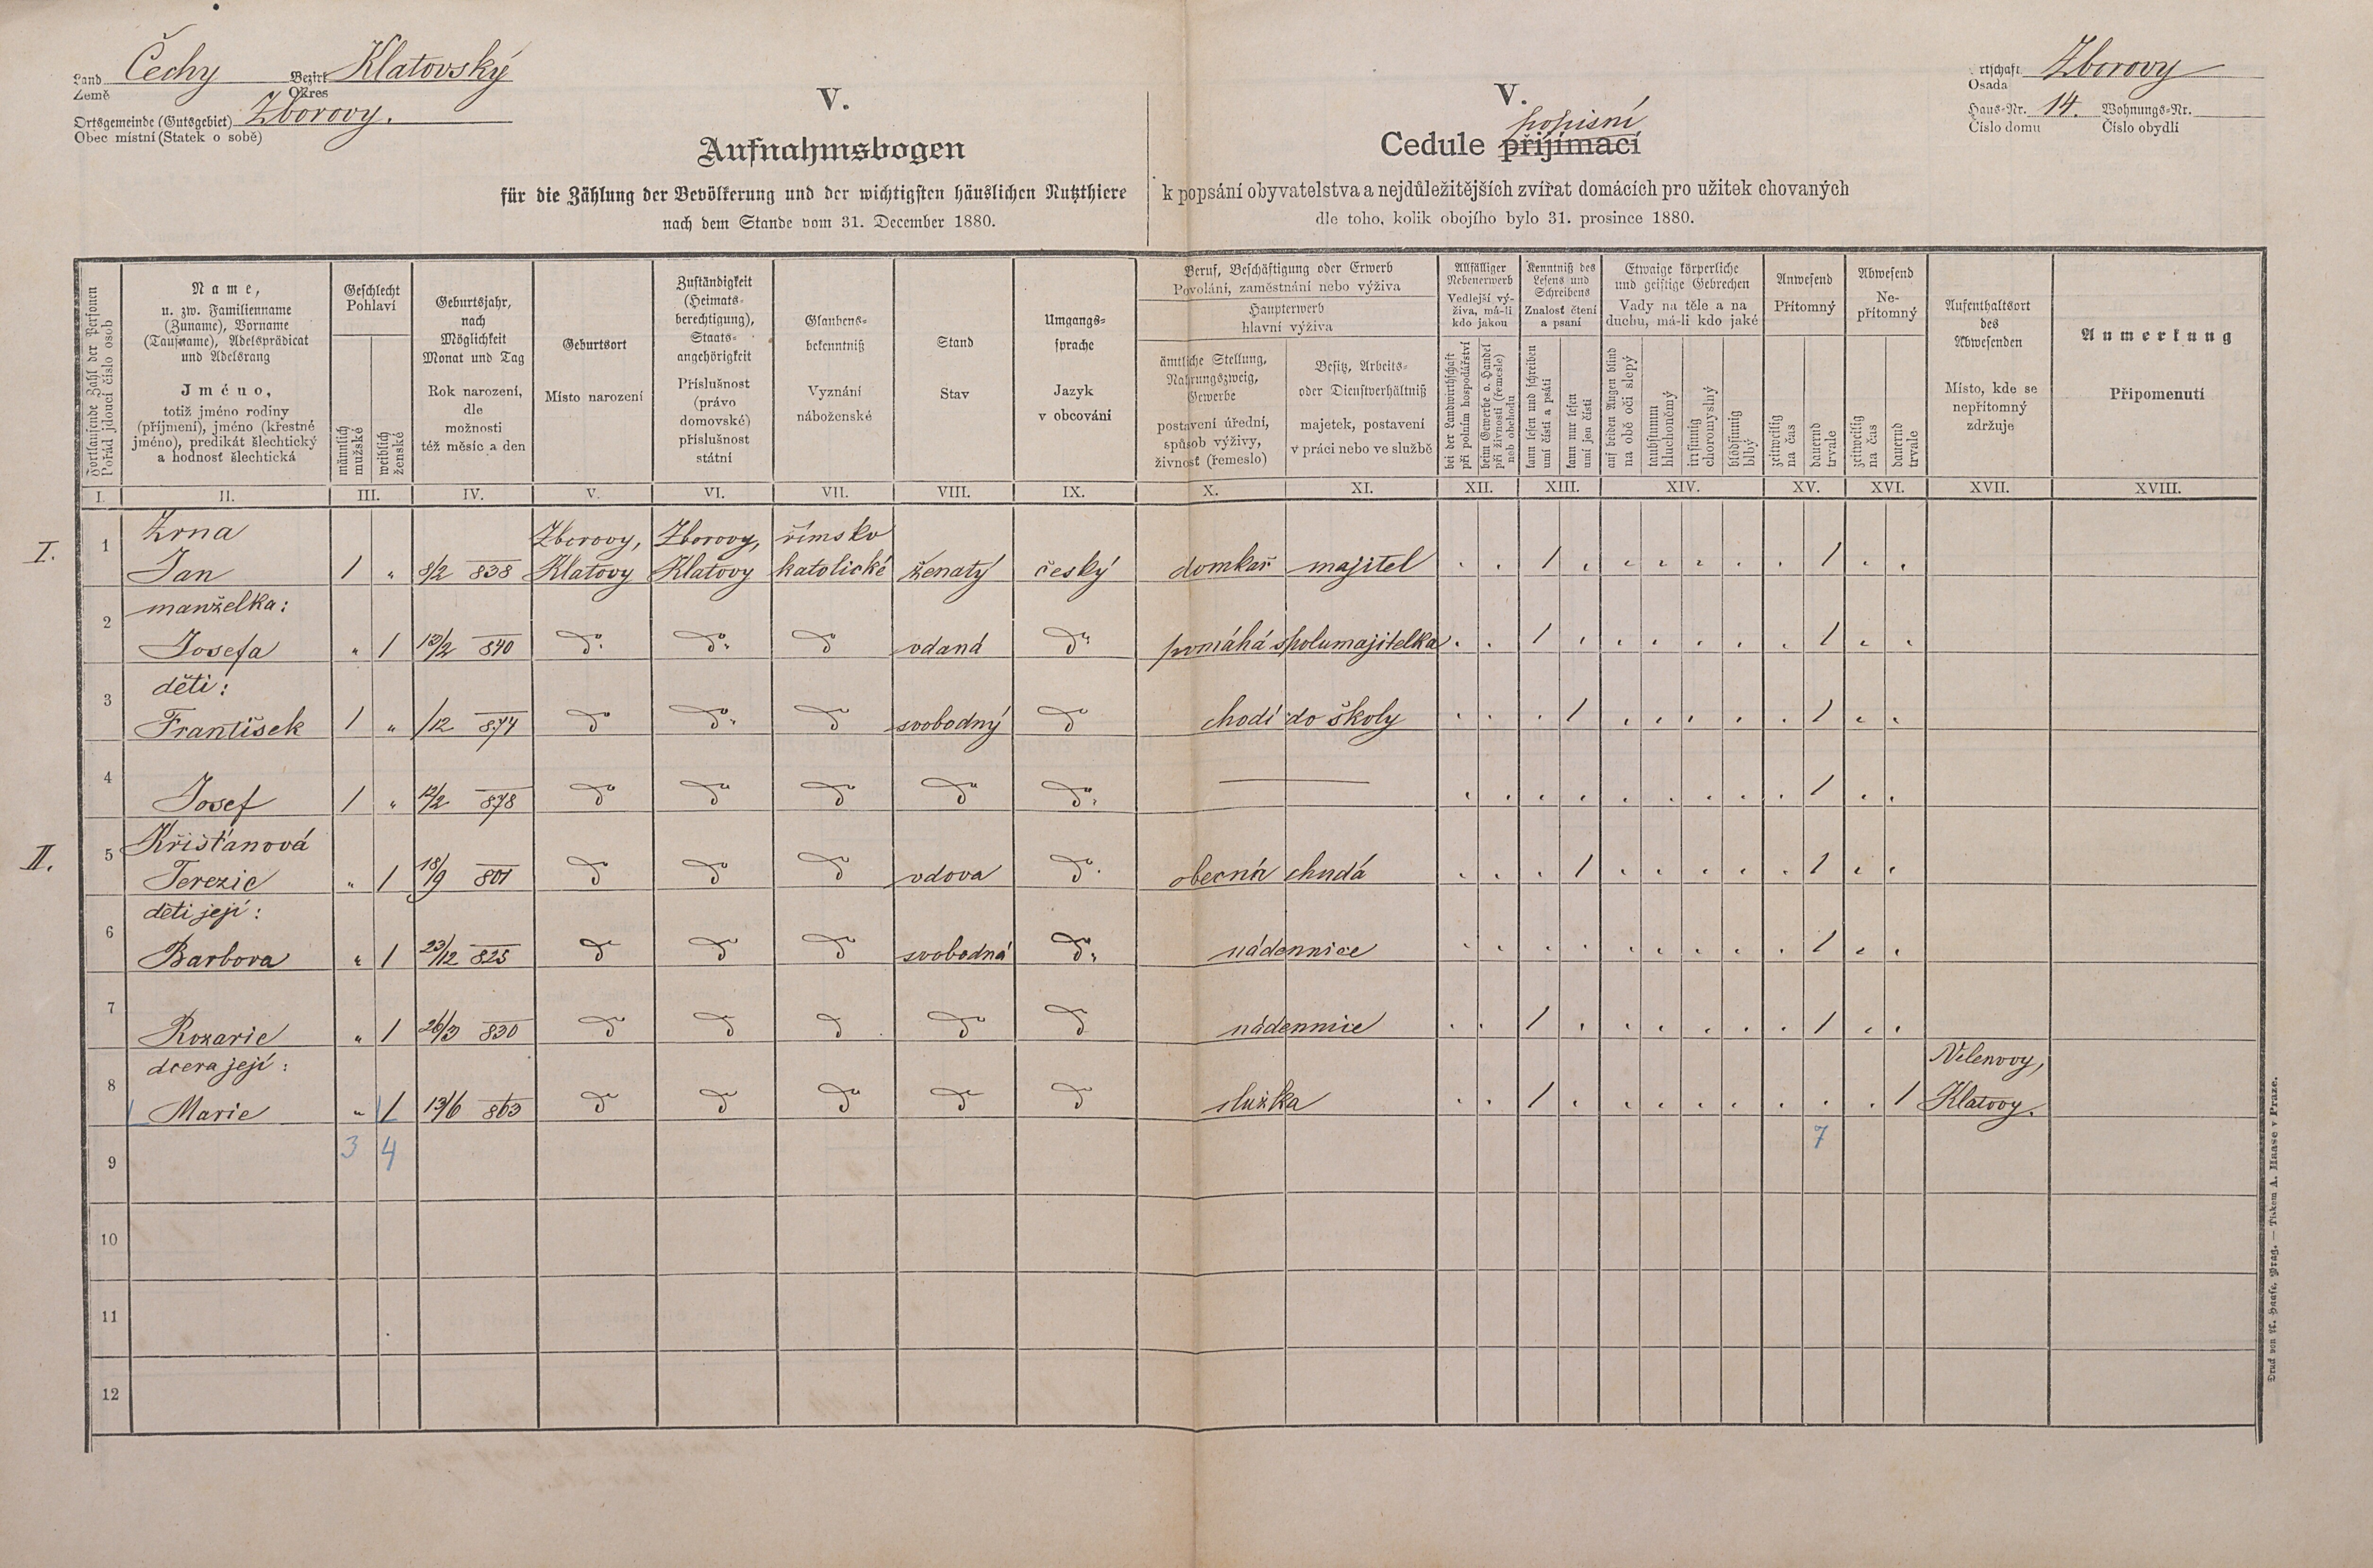 Land Čechy Bezirk Klatovský
Země Okres
Ortsgemeinde (Gutsgebiet) Zborovy.
Obec místní (Statek o sobě)
V.
Aufnahmsbogen
für die Zählung der Bevölkerung und der wichtigsten häuslichen Nutzthiere
nach dem Stande vom 31. December 1880.
V.
popisní
Cedule přijímací
k popsání obyvatelstva a nejdůležitějších zvířat domácích pro užitek chovaných
dle toho, kolik obojího bylo 31. prosince 1880.
Ortschaft Zborovy
Osada
Haus-Nr. 14. Wohnungs-Nr.
Číslo domu Číslo obydlí
Fortlaufende Zahl der Personen
Pořád jdoucí číslo osob
Name,
u. zw. Familienname
(Zuname), Vorname
(Taufname), Adelsprädicat
und Adelsrang
Jméno,
totiž jméno rodiny
(příjmení), jméno (křestné
jméno), predikát šlechtický
a hodnosť šlechtická
Geschlecht
Pohlaví
männlich
mužské
weiblich
ženské
Geburtsjahr,
nach
Möglichkeit
Monat und Tag
Rok narození,
dle
možnosti
též měsíc a den
Geburtsort
Místo narození
Zuständigkeit
(Heimats-
berechtigung),
Staats-
angehörigkeit
Příslušnost
(právo
domovské)
příslušnost
státní
Glaubens-
bekenntniß
Vyznání
náboženské
Stand
Stav
Umgangs-
sprache
Jazyk
v obcování
Beruf, Beschäftigung oder Erwerb
Povolání, zaměstnání nebo výživa
Haupterwerb
hlavní výživa
ämtliche Stellung,
Nahrungszweig,
Gewerbe
postavení úřední,
spůsob výživy,
živnosť (řemeslo)
Besitz, Arbeits-
oder Dienstverhältniß
majetek, postavení
v práci nebo ve službě
Allfälliger
Nebenerwerb
Vedlejší vý-
živa, má-li
kdo jakou
bei der Landwirthschaft
při polním hospodářství
beim Gewerbe o. Handel
při živnosti (řemesle)
neb obchodu
Kenntniß des
Lesens und
Schreibens
Znalosť čtení
a psaní
kann lesen und schreiben
umí čísti a psáti
kann nur lesen
umí jen čísti
Etwaige körperliche
und geistige Gebrechen
Vady na těle a na
duchu, má-li kdo jaké
auf beiden Augen blind
na obě oči slepý
taubstumm
hluchoněmý
irrsinnig
choromyslný
blödsinnig
blbý
Anwesend
Přítomný
zeitweilig
na čas
dauernd
trvale
Abwesend
Ne-
přítomný
zeitweilig
na čas
dauernd
trvale
Aufenthaltsort
des
Abwesenden
Místo, kde se
nepřítomný
zdržuje
Anmerkung
Připomenutí
I. II. III. IV. V. VI. VII. VIII. IX. X. XI. XII. XIII. XIV. XV. XVI. XVII. XVIII.
I. 1 Zrna Zborovy, Zborovy, římsko
Jan 1 " 8/2 838 Klatovy Klatovy katolické ženatý český domkař majitel 1 1
2 manželka:
Josefa " 1 12/2 840 do do do vdaná do pomáhá spolumajitelka 1 1
3 děti:
František 1 " /12 874 do do do svobodný do chodí do školy 1 1
4
Josef 1 " 12/2 878 do do do do do — 1
II. 5 Křišťanová
Terezie " 1 18/9 801 do do do vdova do obecná chudá 1 1
6 děti její:
Barbora " 1 23/12 825 do do do svobodná do nádennice 1
7
Rozarie " 1 26/3 830 do do do do do nádennice 1 1
8 dcera její:
Marie " 1 13/6 863 do do do do do služka 1 1 Klatovy.
9 3 4 7
10
11
12
Druck von A. Haase, Prag. — Tiskem A. Haase v Praze.